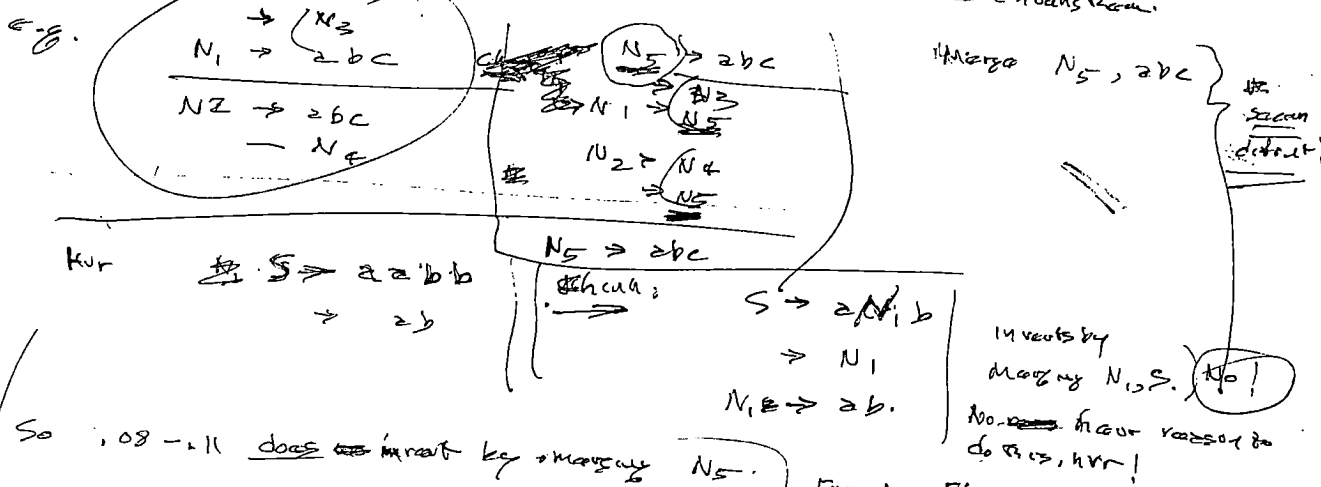 e.g.
→ N3
N1 → abc
N2 → abc
— N4
N5 → abc
N1 → N3
N5
N2 → N4
→ N5
N5 → abc
Merge N5, abc
Hvr S → aabb
→ ab
S → aN1b
→ N1
N1 → ab.
invents by
merging N1, S. No!
No heur reason to
do this, hvr!
So .08 - .11 does invent by merging N5.